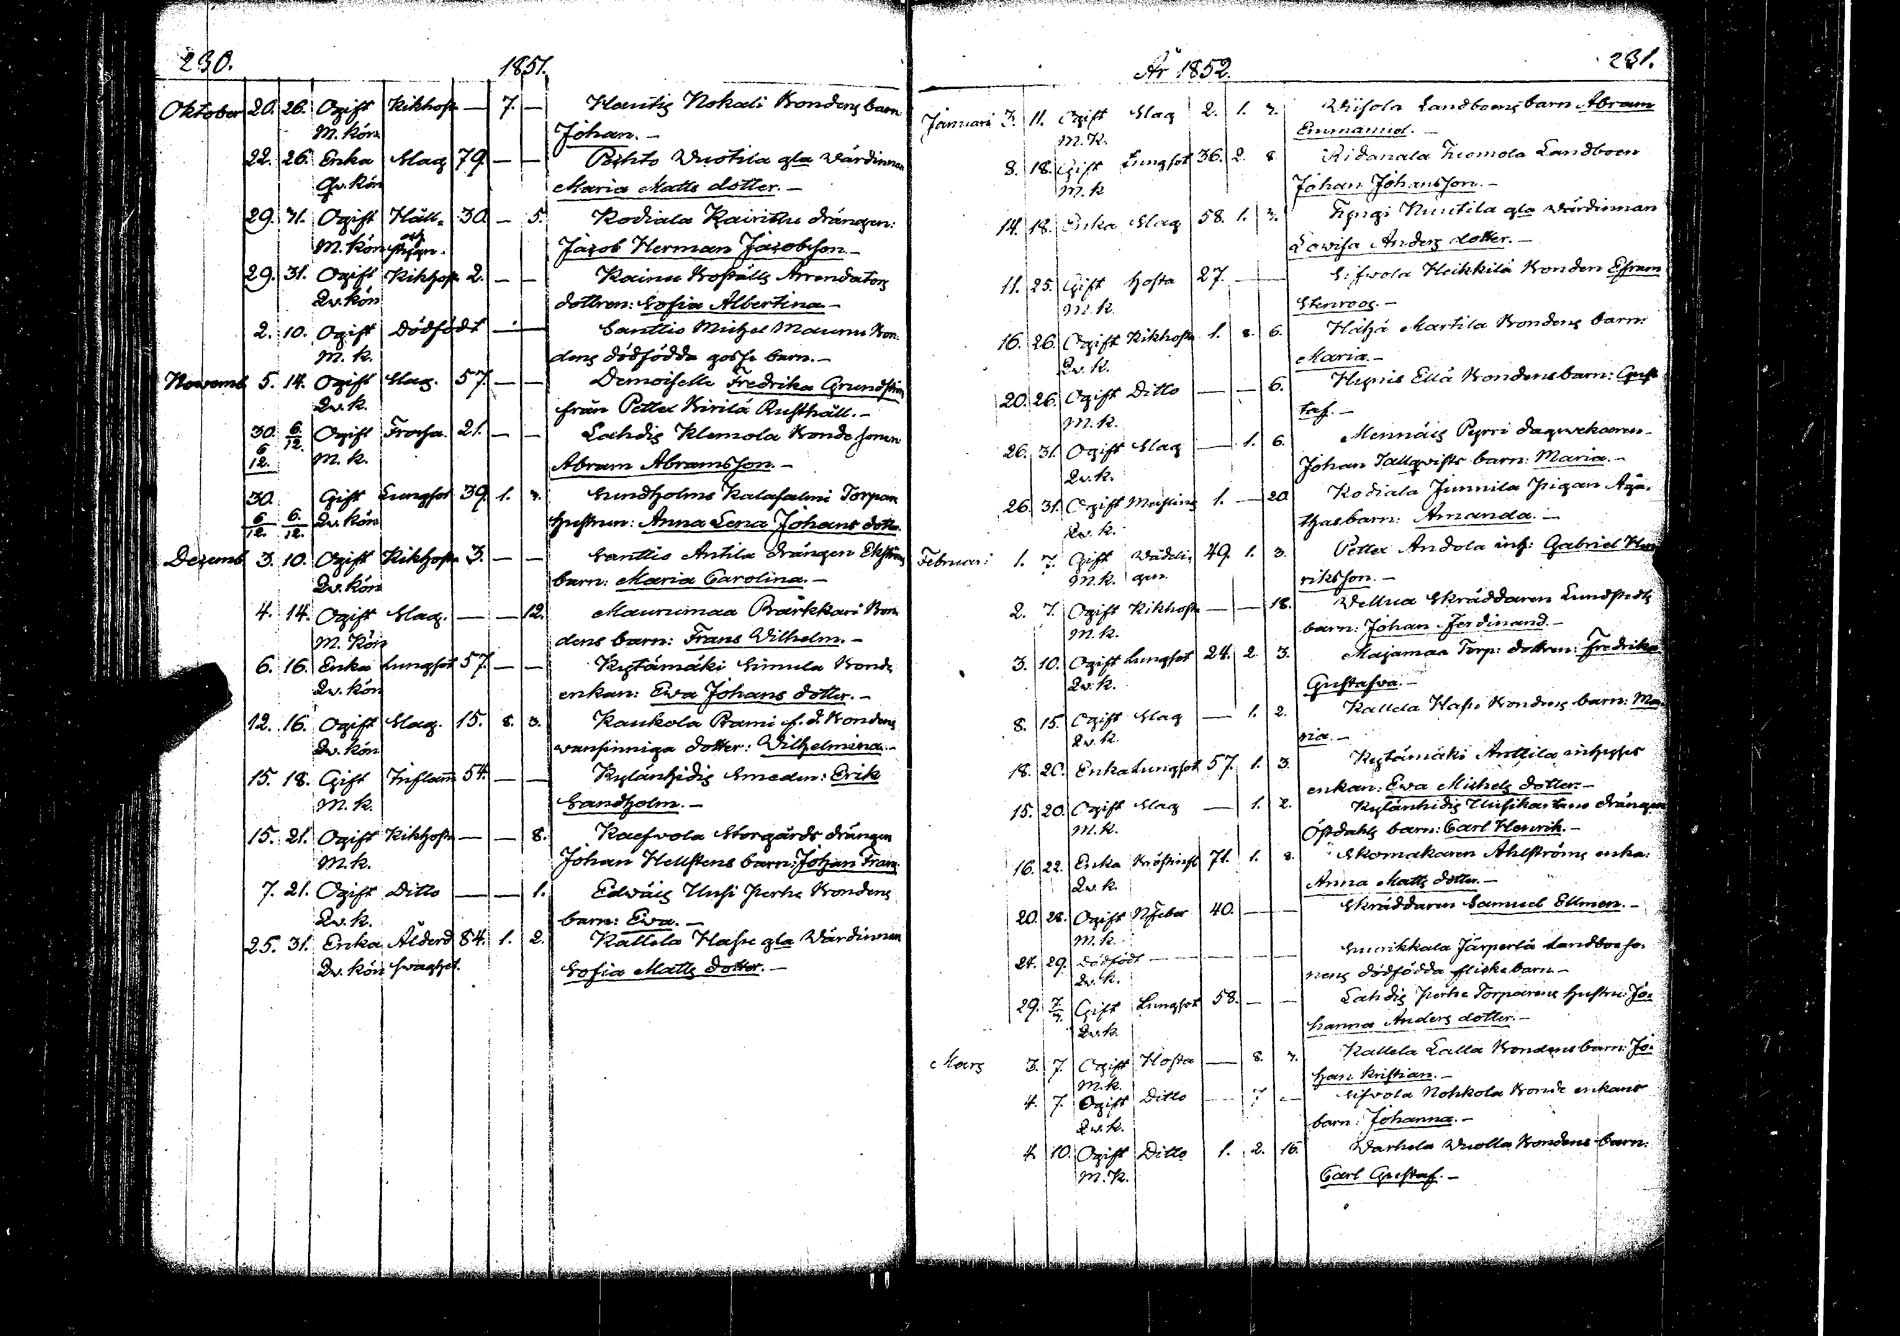 230.
1851.
Oktober 20. 26. Ogift Kikhosta — 7. — Hautis Nokali Bondens barn
M. kön Johan. —
22. 26. Enka Slag 79. — — Pehto Wuotila gla Wärdinnan
Qv. kön Maria Matts dotter. —
29. 31. Ogift Håll- 30. — 5. Kodiala Kairithu drängen:
M. kön och styng. Jacob Herman Jacobsson —
29. 31. Ogift Kikhosta 2. — — Kainu Boställs Arrendators
Qv. kön dottren: Sofia Albertina —
2. 10. Ogift Dödfödt — — Santtio Michel Maunu Bon-
M. k. dens dödfödda gosse barn. —
Novemb. 5. 14. Ogift Slag. 57. — — Demoiselle Fredrika Grundström
Qv. k. från Pettex Kirilä Rusthåll. —
30. 6/12. Ogift Frossa. 21. — — Lahdis Klemola Bonde sonen
6/12. M. k. Abram Abramsson. —
30. Gift Lungsot 39. 1. 7. Sundholms Kalasalmi Torpare
6/12. 6/12. Qv. kön hustrun: Anna Lena Johans dotter
Decemb. 3. 10. Ogift Kikhosta 3. — — Santtio Antila drängen Ekströms
Qv. kön barn: Maria Carolina. —
4. 14. Ogift Slag. — — 12. Maurumaa Prärkkari Bon-
M. Kön dens barn: Frans Wilhelm. —
6. 16. Enka Lungsot 57. — — Kytämäki Simula Bonde
Qv. kön enkan: Ewa Johans dotter. —
12. 16. Ogift Slag. 15. 8. 3. Kaukola Rami f. d. Bondens
Qv. kön vansinniga dotter: Wilhelmina. —
15. 18. Gift Inflam 54. — — Kylänhidis Smeden: Erik
M. k. Sandholm. —
15. 21. Ogift Kikhosta — — 8. Kaefvola Storgårds drängen
M. k. Johan Hellstens barn: Johan Frans
7. 21. Ogift Ditto — — 1. Edwäis Uusi Perhe Bondens
Qv. k. barn: Ewa. —
25. 31. Enka Ålderd 84. 1. 2. Kallela Hassu gla Wärdinnan
Qv. kön svaghet. Sofia Matts dotter. —
År 1852.
231.
Januari 3. 11. Ogift Slag 2. 1. 7. Wiisola Landboens barn Abram
M. K. Emmanuel. —
8. 18. Gift Lungsot 36. 2. 8. Ridanala Tuomola Landboen
M. k. Johan Johansson. —
14. 18. Enka Slag 58. 1. 3. Hyngi Nuutila gla Wärdinnan
Lovisa Anders dotter. —
11. 25. Gift Hosta 27. — Sifvola Heikkilä Bonden Efraim
M. k. Stenroos. —
16. 26. Ogift Kikhosta 1. 8. 6. Häyhä Martila Bondens barn:
Qv. k. Maria. —
20. 26. Ogift Ditto — — 6. Hypnis Ellä Bondens barn: Gus-
M. k. taf. —
26. 31. Ogift Slag — 1. 6. Mennäis Pyrri dagverkaren
Qv. k. Johan Tallqvists barn: Maria. —
26. 31. Ogift Messling 1. — 20 Kodiala Junnila pigan Aga-
Qv. k. thas barn: Amanda. —
Februari 1. 7. Gift 49. 1. 3. Pettex Andola inh: Gabriel Hen-
M. k. riksson. —
2. 7. Ogift Kikhosta — — 18. Wellua Skräddaren Lundstedts
M. k. barn: Johan Ferdinand. —
3. 10. Ogift Lungsot 24. 2. 3. Majamaa Torp: dottren: Fredrika
Qv. k. Gustafva. —
8. 15. Ogift Slag — 1. 2. Kallela Hassu Bondens barn: Ma-
Qv. k. ria. —
18. 20. Enka Lungsot 57. 1. 3. Kytämäki Anttila inhyses
enkan: Eva Michels dotter. —
15. 20. Ogift Slag — 1. 2. Kylänhidis Uusikartano drängen
M. k. Östdahls barn: Carl Henrik. —
16. 22. Enka Bröstinfl 71. 1. 8. Skomakaren Ahlströms enka:
Qv. k. Anna Matts dotter. —
20. 28. Ogift N.feber 40. — — Skräddaren Samuel Ellmen. —
M. k.
24. 29. Dödfödt — — — — Suurikkala Järperlä Landboe so-
Qv. k. nens dödfödda flicke barn. —
29. 7/3. Gift Lungsot 58. — — Lahdis Perhe Torparens hustru: Jo-
Qv. k. hanna Anders dotter. —
Mars 3. 7. Ogift Hosta — 8. 7. Kallela Lalla Bondens barn: Jo-
M. k. han Kristian. —
4. 7. Ogift Ditto — 7 — Sifvola Nohkola Bonde enkans
Qv. k. barn: Johanna. —
4. 10. Ogift Ditto 1. 2. 16. Warhela Wuolla Bondens barn:
M. K. Carl Gustaf. —